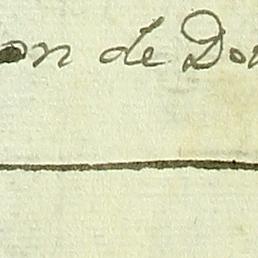 on de Don